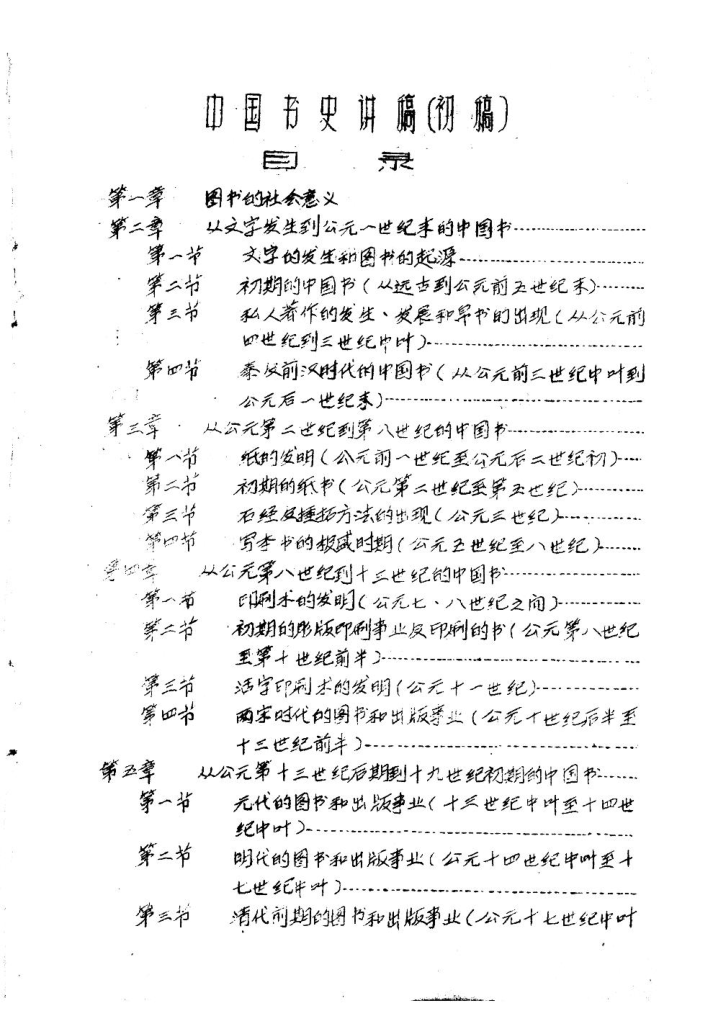 中国书史讲稿(初稿)
目 录
第一章 图书的社会意义
第二章 从文字发生到公元一世纪末的中国书
第一节 文字的发生和图书的起源
第二节 初期的中国书(从远古到公元前五世纪末)
第三节 私人著作的发生、发展和帛书的出现(从公元前
四世纪到三世纪中叶)
第四节 秦及前汉时代的中国书(从公元前三世纪中叶到
公元后一世纪末)
第三章 从公元第二世纪到第八世纪的中国书
第一节 纸的发明(公元前一世纪至公元后二世纪初)
第二节 初期的纸书(公元第二世纪至第五世纪)
第三节 石经及捶拓方法的出现(公元三世纪)
第四节 写本书的极盛时期(公元五世纪至八世纪)
第四章 从公元第八世纪到十三世纪的中国书
第一节 印刷术的发明(公元七、八世纪之间)
第二节 初期的彫版印刷事业及印刷的书(公元第八世纪
至第十世纪前半)
第三节 活字印刷术的发明(公元十一世纪)
第四节 两宋时代的图书和出版事业(公元十世纪后半至
十三世纪前半)
第五章 从公元第十三世纪后期到十九世纪初期的中国书
第一节 元代的图书和出版事业(十三世纪中叶至十四世
纪中叶)
第二节 明代的图书和出版事业(公元十四世纪中叶至十
七世纪中叶)
第三节 清代前期的图书和出版事业(公元十七世纪中叶